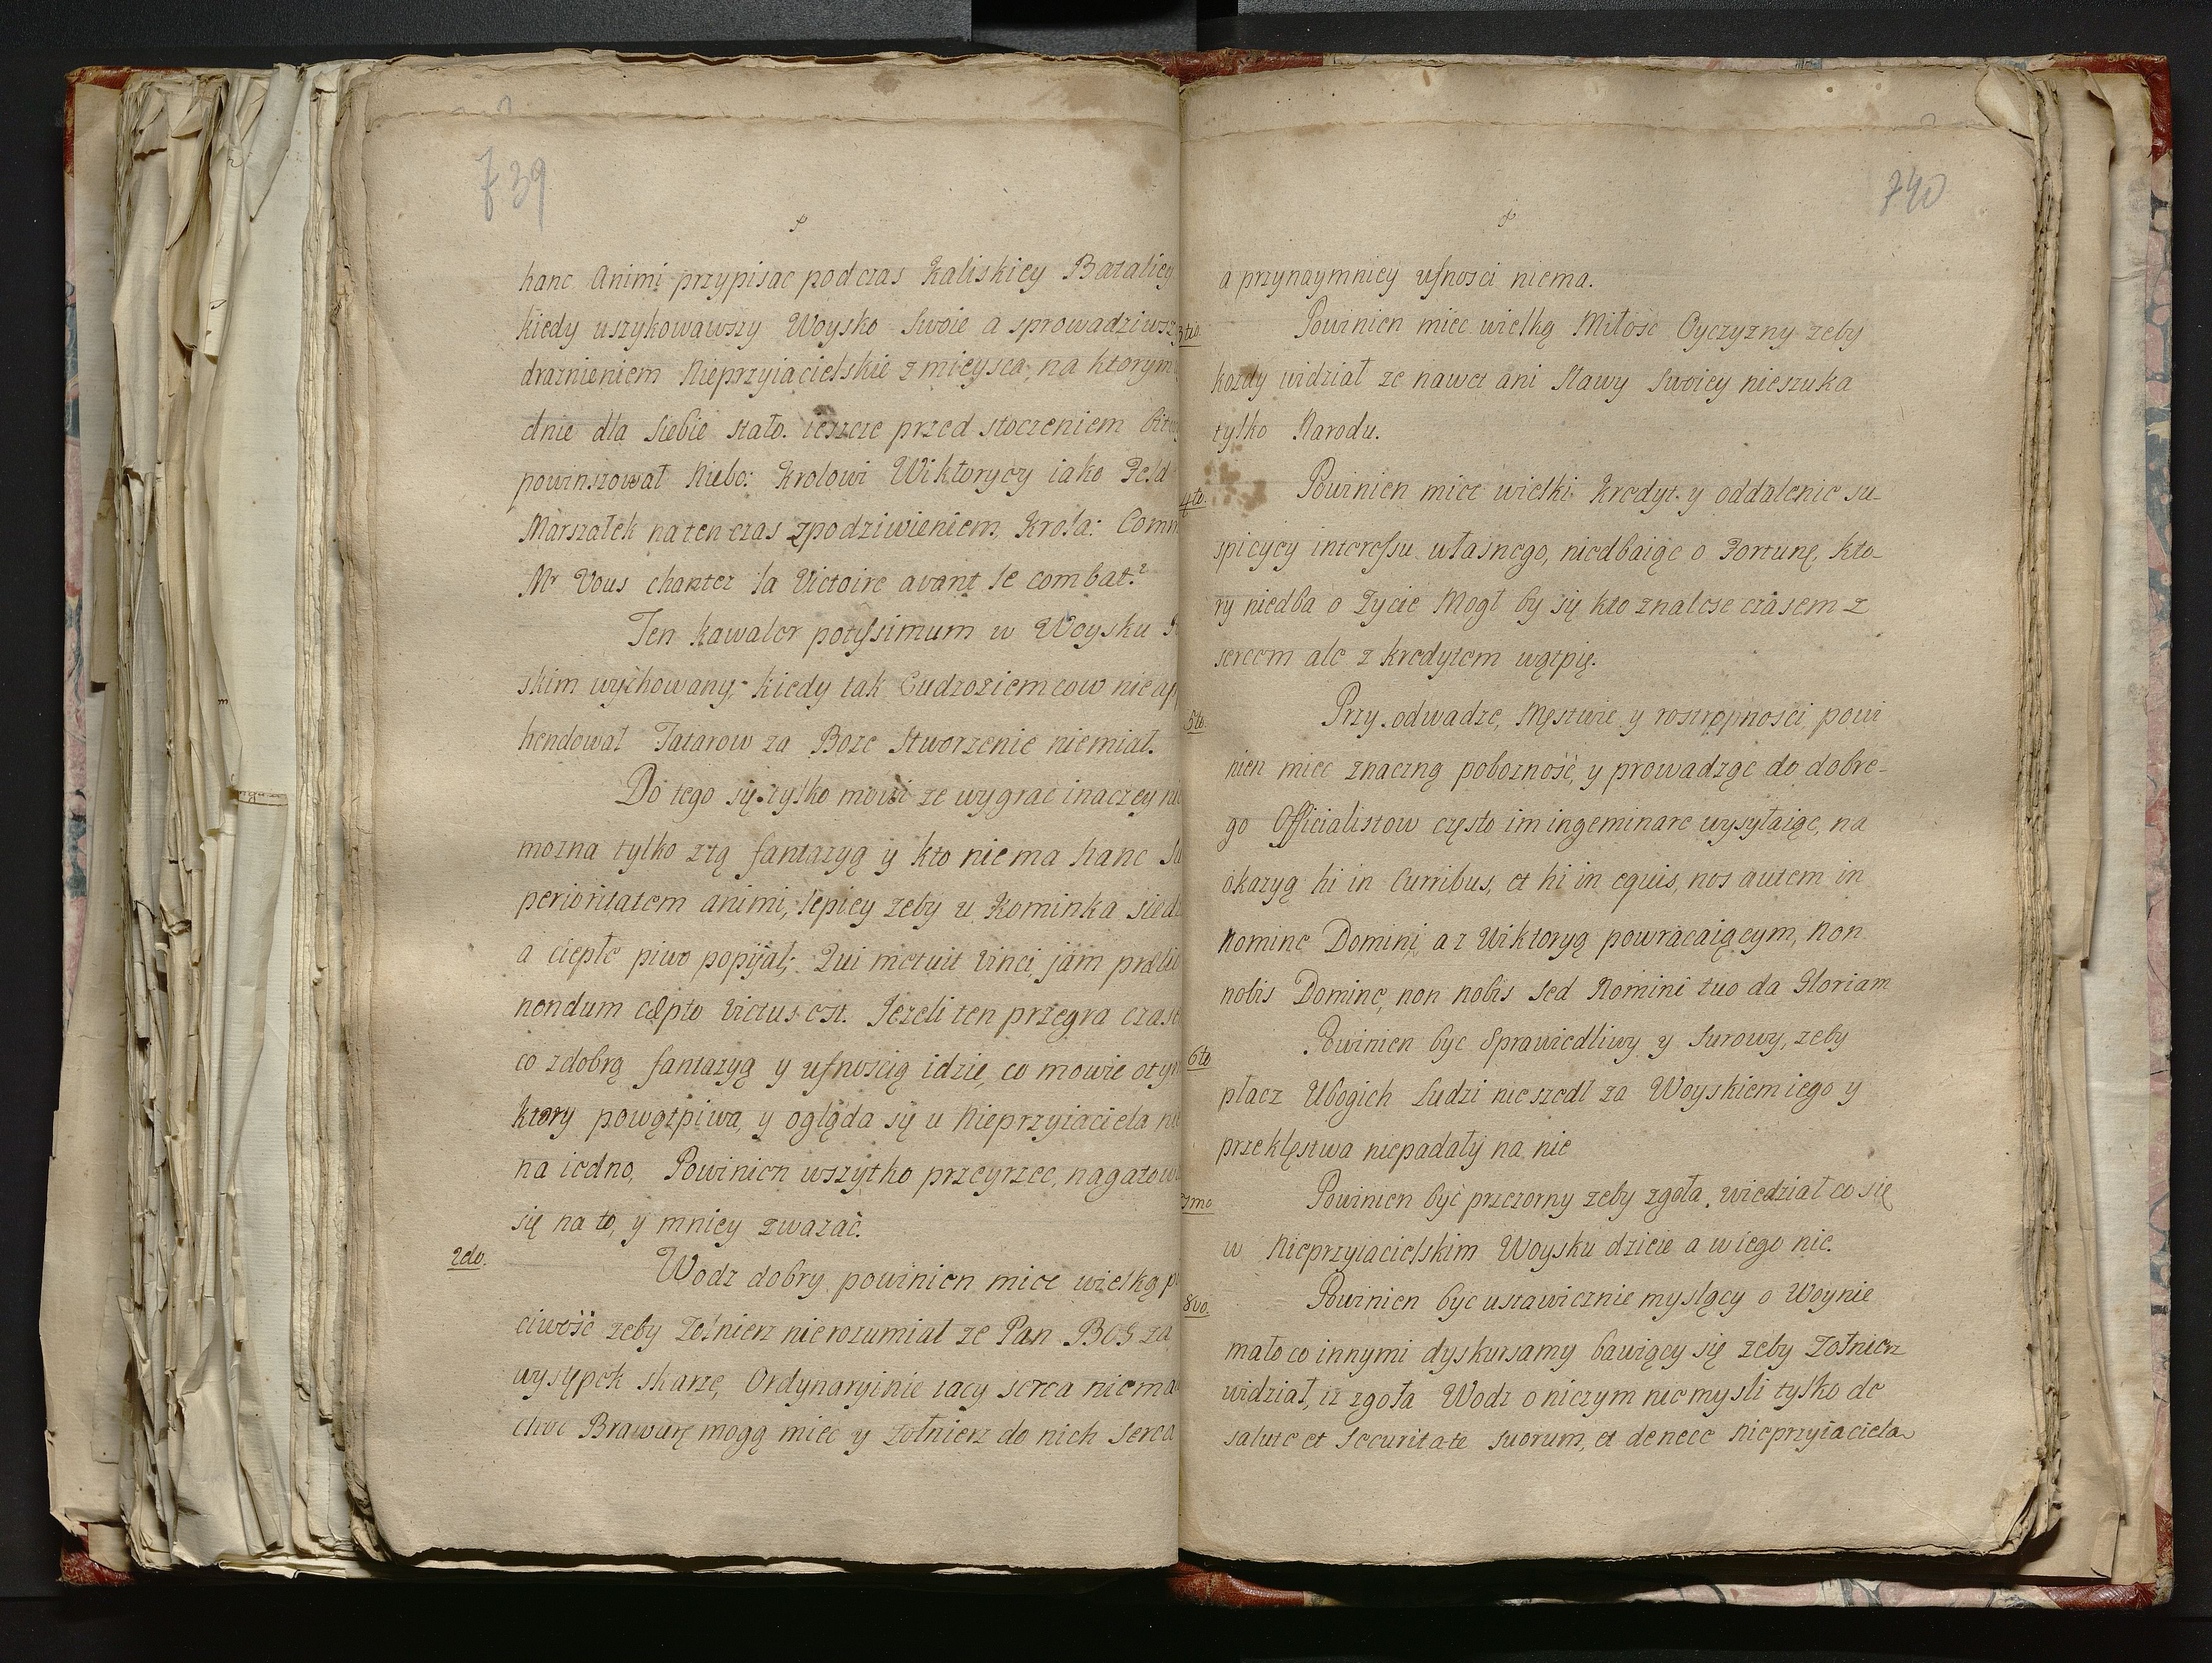 739
hanc Animi przypisac podczas Kaliskiey Batalicy
kiedy uszykowawszy Woysko Swoie a sprowadziwsz
draznieniem Nieprzyiacielskie z mieysca, na ktorym
dnie dla siebie stało. ieszcze przed stoczeniem bit
powinszował Niebo: Krolowi Wiktoryey iako Feld
Marszałek naten czas zpodziwieniem, Krola: Comm
Mr Vous chantez la Victoire avant le combat?
Ten Kawaler potissimum w Woysku
skim wychowany, kiedy tak Cudzoziemcow nie ap
hendował Tatarow za Boze Stworzenie niemiał.
Do tego się tylko mowi ze wygrac inaczey ni
mozna tylko ztą fantazyą y kto nie ma hanc Su
perioritatem animi, lepiey zeby u Kominka sied
a ciepłe piwo popijał; Qui metuit Vinci, jam prælio
nondum cæpto Victus est. Jezeli ten przegra czas
co zdobrą fantazyą y ufnoscią idzie, co mowie otym
ktory powątpiwa, y ogląda się u Nieprzyiaciela na
na iedno, Powinien wszytko przeyrzec, nagatow
się na to, y mniey zwazać.
2do.
Wodz dobry powinien miec wielką p
ciwość zeby Zołnierz nierozumiał ze Pan BOG za
wysтępek skarze, Ordynaryinie tacy serca niema
choc Brawurę mogą miec y zołnierz do nich Serca
740
a przynaymniey ufnosci niema.
3tio.
Powinien miec wielką Miłosc Oyczyzny zeby
kozdy widział ze nawet ani Sławy Swoiey nieszuka
tylko Narodu.
4to.
Powinien miec wielki Kredyt. y oddalenie su-
spicyey interessu własnego, niedbaiąc o Fortunę, kto-
ry niedba o Zycie Mogł by się kto znalesc czasem z
sercem ale z kredytem wątpię.
5to
Przy odwadze, Męstwie y rostropnosci powi
nien miec znaczną pobozność, y prowadząc do dobre-
go Officialistow często im ingeminare wysyłaiąc, na
okazyą hi in Curribus, et hi in equis, nos autem in
Nomine Domini, a z Wiktoryą powracaiącym, non
nobis Domine, non nobis Sed Nomini tuo da Gloriam
6to
Powinien byc Sprawiedliwy y Surowy, zeby
płacz Ubogich Ludzi nie szedł za Woyskiem iego y
przeklęstwa niepadały na nie
7mo
Powinien być przezorny zeby zgoła, wiedział co się
w Nieprzyiacielskim Woysku dzieie a w iego nie.
8vo.
Powinien byc ustawicznie myslący o Woynie
mało co innymi dyskursamy bawiący się zeby Zołnierz
widział, iz zgoła Wodz o niczym nie mysli tylko de
salute et Securitate suorum, et de nece nieprzyiaciela